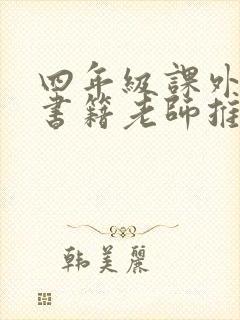 四年级課外
書籍老師推
韩美麗